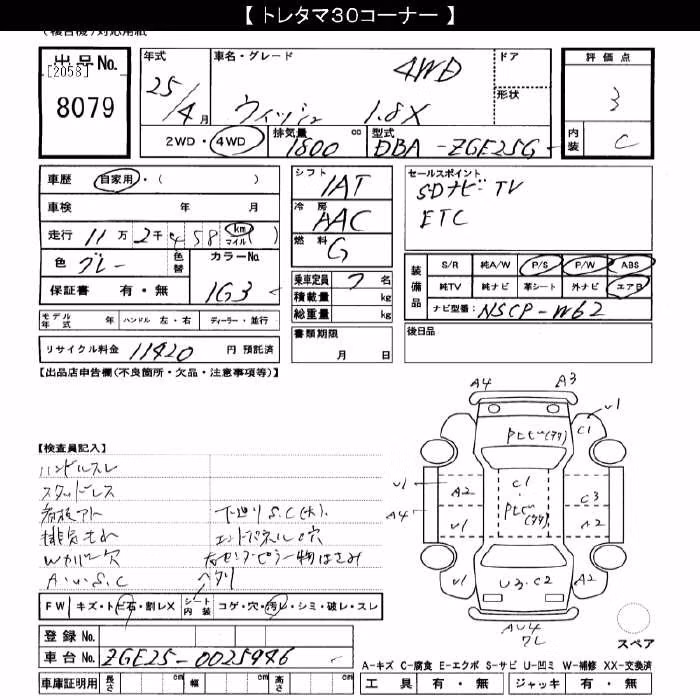 【 トレタマ30コーナー 】
(複合機)対応用紙
出品No. [2058] 8079
年式 25/4月
車名・グレード ウィッシュ 1.8X 4WD
ドア
形状
2WD・4WD
排気量 1800 cc
型式 DBA-ZGE25G
評価点 3
内装 C
車歴 自家用・( )
車検 年 月
走行 11万2千458 km マイル ( )
色 グレー 色替
カラーNo. 1G3
保証書 有・無
シフト 1AT
冷房 AAC
燃料 G
乗車定員 7名
積載量 kg
総重量 kg
セールスポイント
SDナビ TV
ETC
装備品
S/R 純A/W P/S P/W ABS
純TV 純ナビ 革シート 外ナビ エアB
ナビ型番: NSCP-W62
モデル年式 年 ハンドル 左・右 ディーラー・並行
リサイクル料金 11420 円 預託済
書類期限 月 日
後日品
【出品店申告欄(不良箇所・欠品・注意事項等)】
【検査員記入】
ハンドルスレ
スタッドレス
看板アト
排気もれ
Wカバー欠
A・U・S・C
下廻りS.C(大)
エンドパネル穴
ヘタリ
FW キズ・トビ石・割レX
シート内装 コゲ・穴・汚レ・シミ・破レ・スレ
登録No.
車台No. ZGE25-0025946
車庫証明用 長さ cm 幅 cm 高さ cm
A4 A3
U1
C1
U1 A2 C1 C3
A4 U1 A2
U1 U3.C2 A2
AU4
ワレ
スペア
A-キズ C-腐食 E-エクボ S-サビ U-凹ミ W-補修 XX-交換済
工具 有・無 ジャッキ 有・無